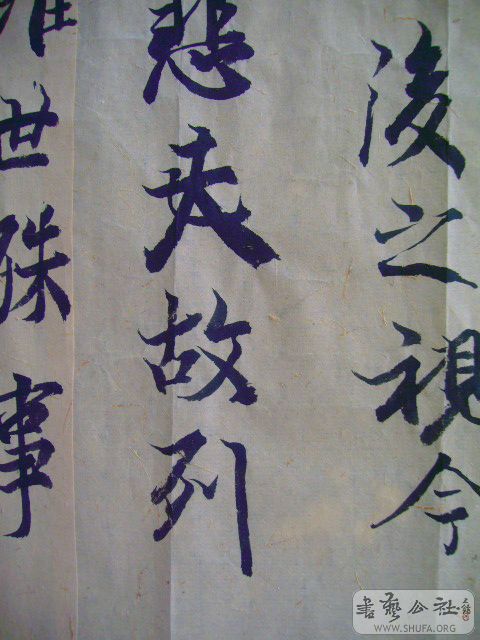 後之視今
悲夫故列
雖世殊事
書藝公社
WWW.SHUFA.ORG